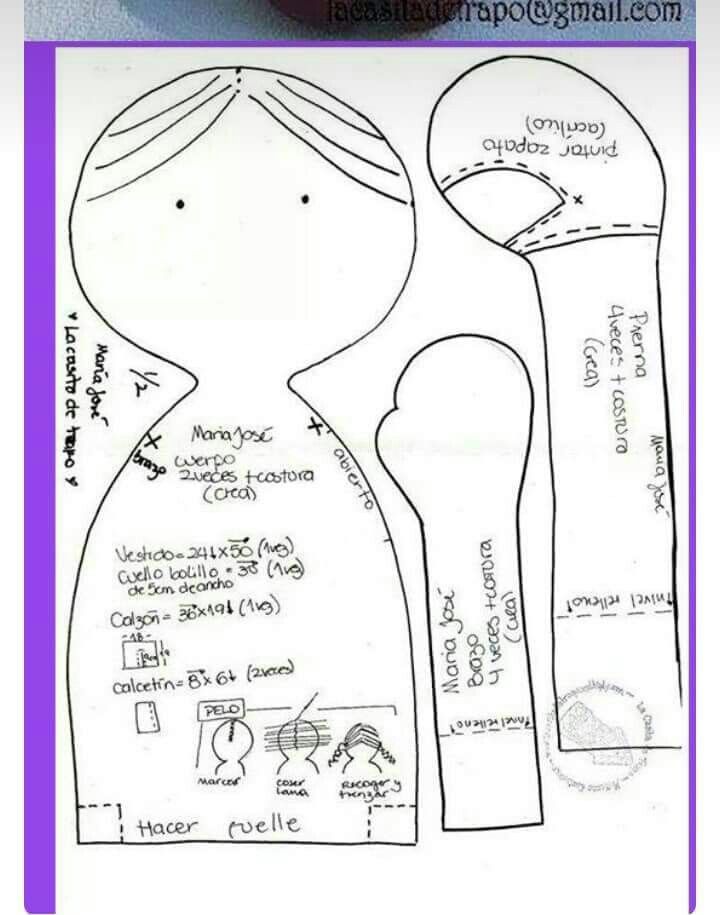 lacasitadetrapo@gmail.com
pintar zapato
(acrílico)
x
Pierna
4 veces + costura
(crea)
María José
↑nivel relleno↑
María José
♥ La casita de trapo ♥
1/2
x
brazo
María José
cuerpo
2 veces + costura
(crea)
x
abierto
Vestido = 24↓ x 50 (1 vez)
cuello bolillo = 30 (1 vez)
de 5cm de ancho
Calzón = 36 x 19↓ (1 vez)
-18-
calcetín = 8 x 6↓ (2 veces)
PELO
marcar
coser
lana
Recoger y
trenzar
Hacer fuelle
María José
Brazo
4 veces + costura
(crea)
↑nivel relleno↑